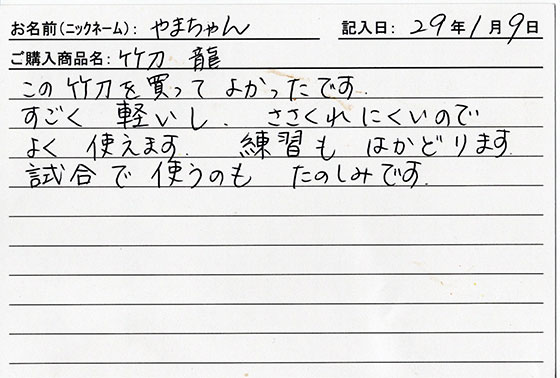 お名前(ニックネーム): やまちゃん 記入日: 29年1月9日
ご購入商品名: 竹刀 龍
この竹刀を買って よかったです.
すごく 軽いし. ささくれにくいので
よく 使えます. 練習も はかどります.
試合で 使うのも たのしみです.